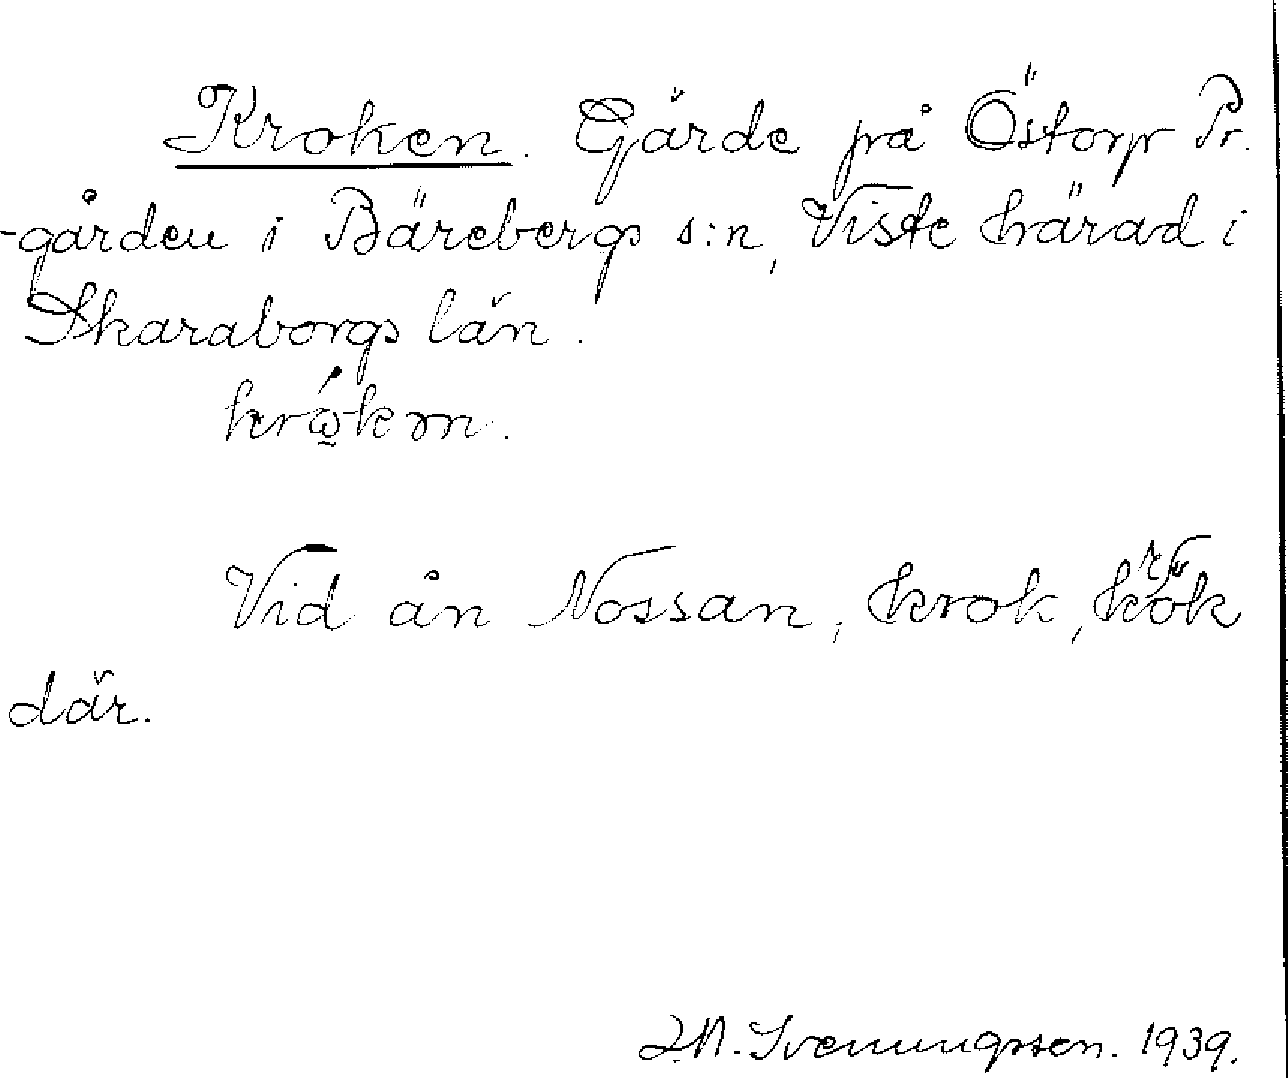 Kroken. Gärde på Östorp Pr.
-gården i Bärebergs s:n, Viste härad i
Skaraborgs län.
Vid ån Nossan, krok, krök
där.
Svenungsson. 1939.